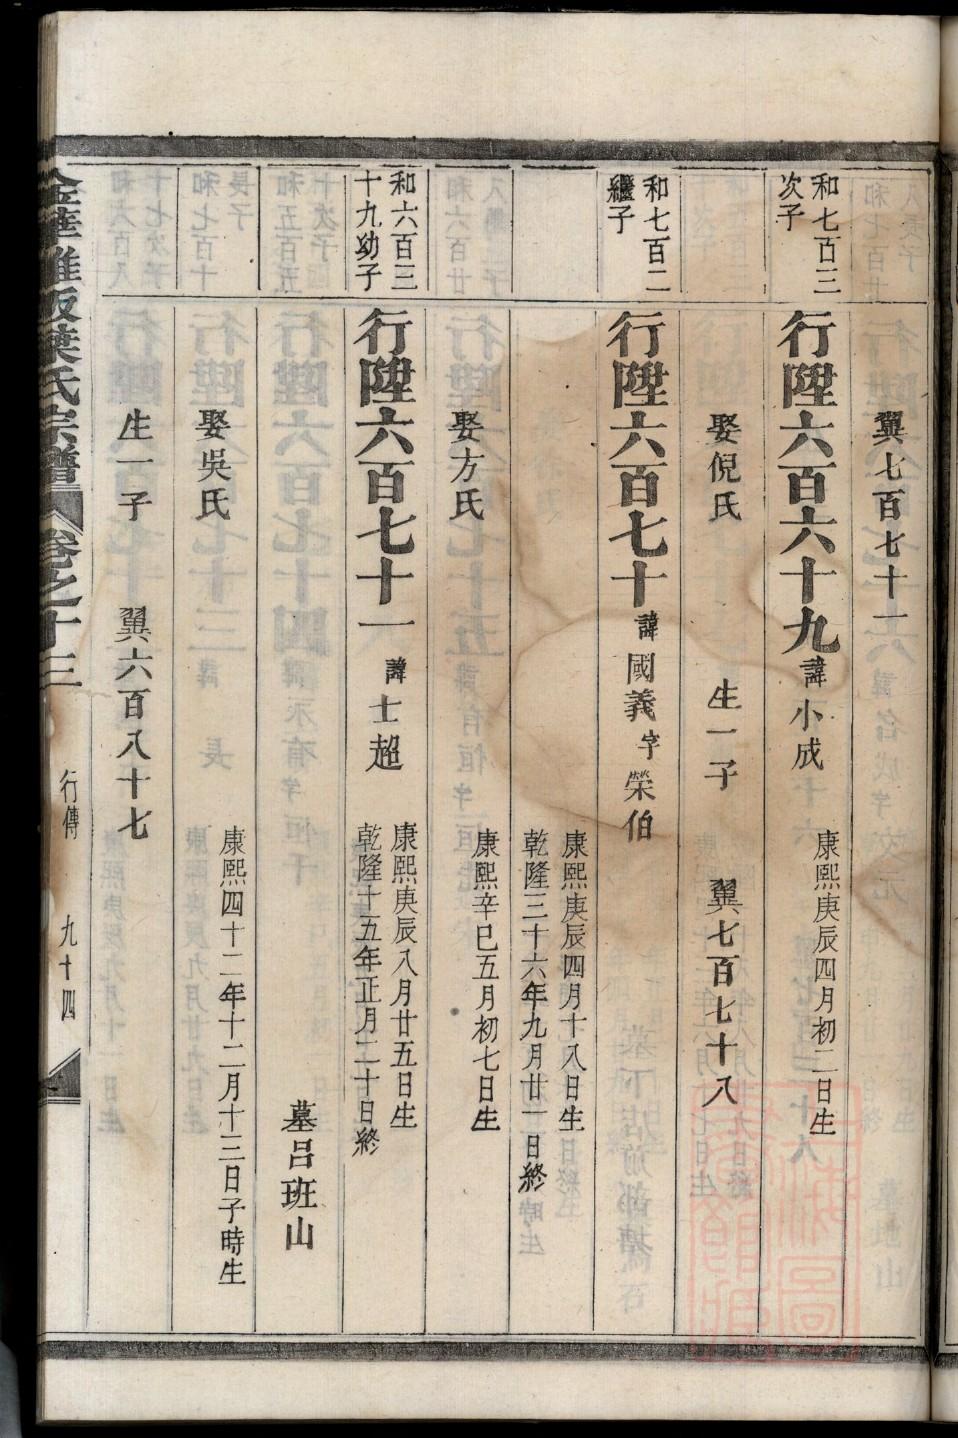 翼七百七十一
和七百三
次子
行陞六百六十九諱小成
康熙庚辰四月初二日生
娶倪氏 生一子 翼七百七十八
和七百二
繼子
行陞六百七十諱國義字榮伯
康熙庚辰四月十八日生
乾隆三十六年九月廿一日終
娶方氏
康熙辛巳五月初七日生
和六百三
十九幼子
行陞六百七十一諱士超
康熙庚辰八月廿五日生
乾隆十五年正月二十日終
墓呂班山
娶吳氏
康熙四十二年十二月十三日子時生
生一子 翼六百八十七
金華雅畈葉氏宗譜 卷之十三 行傳 九十四